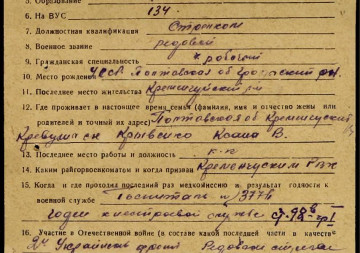 5. Образование
6. На ВУС 134.
7. Должностная квалификация Стрелком
8. Военное звание рядовой
9. Гражданская специальность рабочий
10. Место рождения УССР Полтавская об рн.
11. Последнее место жительства Кременчугский рн
12. Где проживает в настоящее время семья (фамилия, имя и отчество жены или
родителей и точный их адрес) Полтавская об Кременчугский
Кривуши сн Крывенко В.
13. Последнее место работы и должность к-к
14. Каким райгорвоенкоматом и когда призван Кременчугским РВК
15. Когда и где проходил последний раз медкомиссию и результат годности к
военной службе Госпиталь №3776
Годен к нестроевой службе ст. 98
16. Участие в Отечественной войне (в составе какой последней части и в качестве
2й Украинск фронт Рядовой